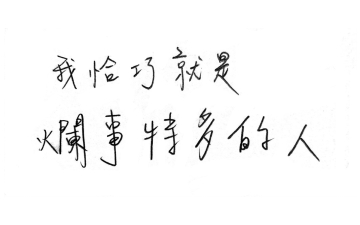 我恰巧就是
爛事特多的人